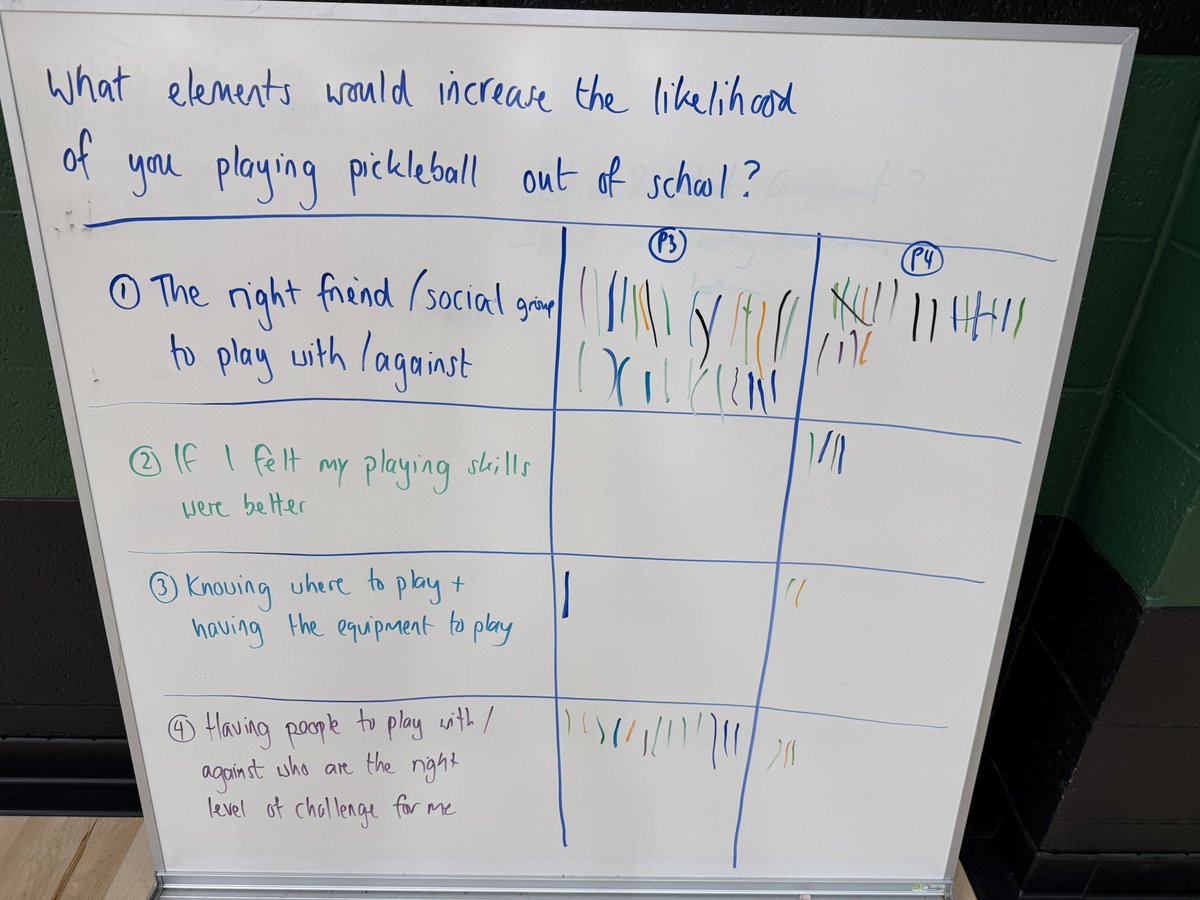 What elements would increase the likelihood
of you playing pickleball out of school?
P3
P4
① The right friend/social group
to play with/against
② If I felt my playing skills
were better
③ Knowing where to play +
having the equipment to play
④ Having people to play with/
against who are the right
level of challenge for me